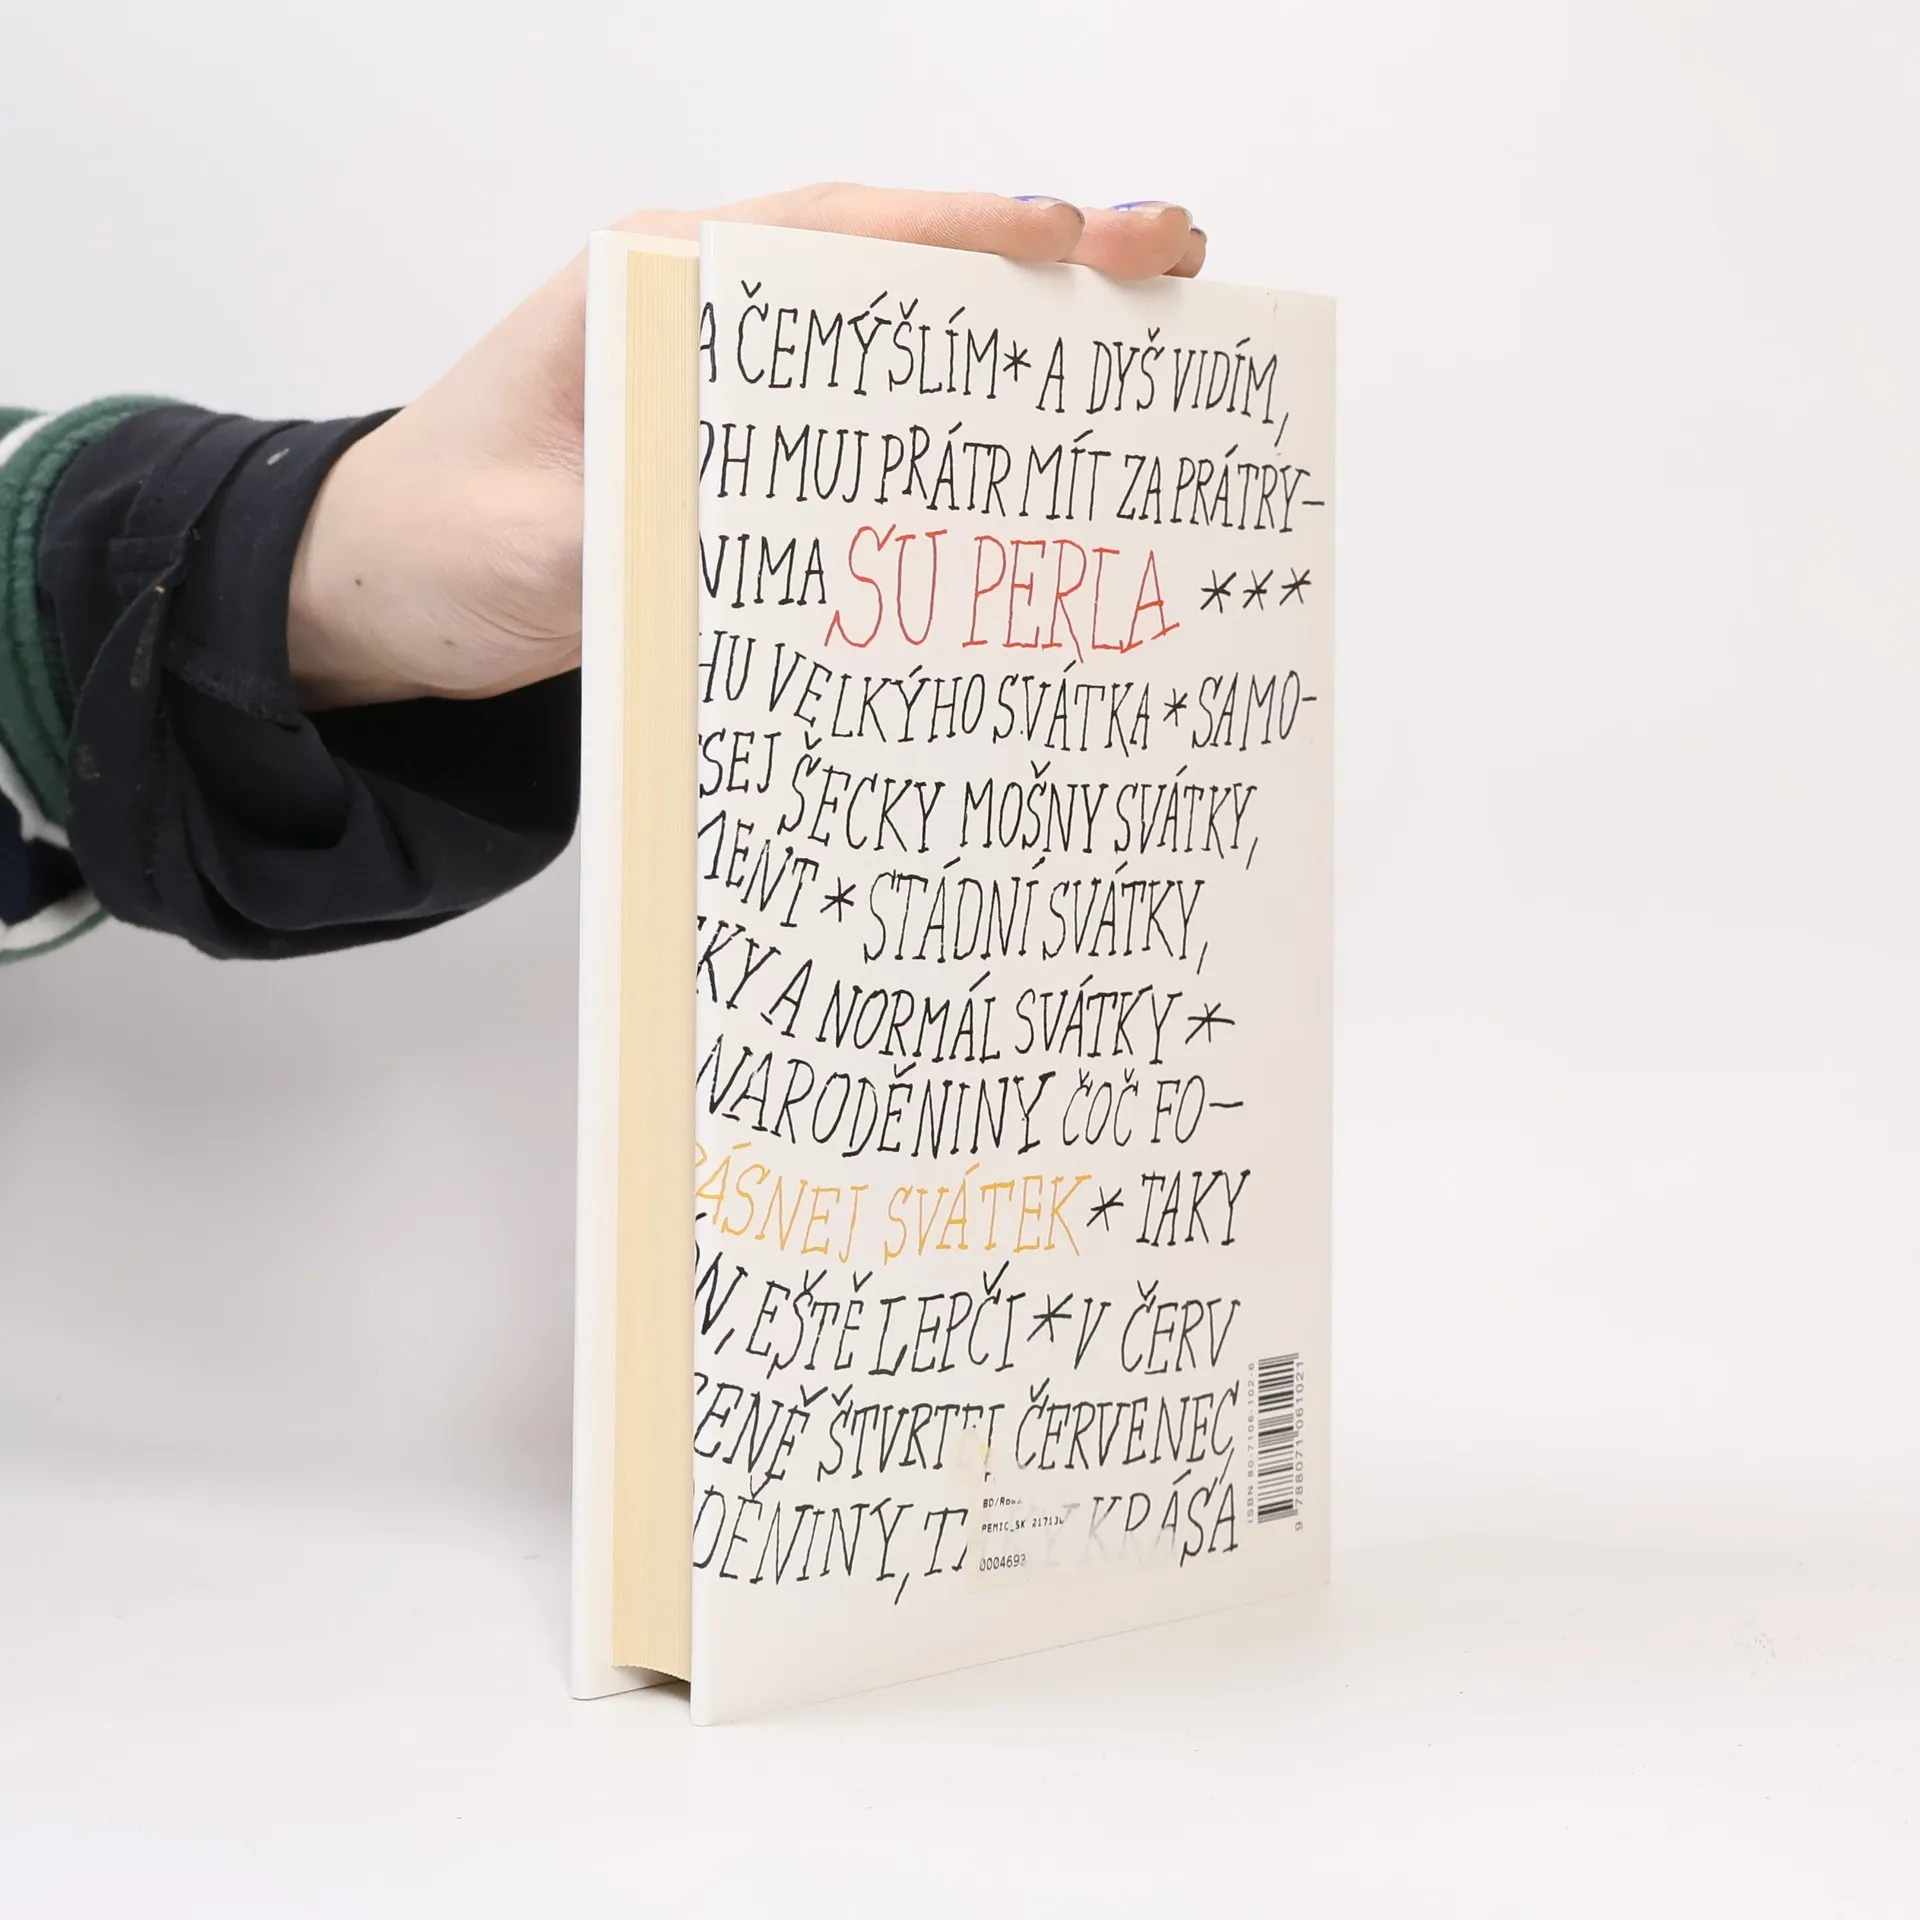 A ČEMÝŠLÍM * A DYŠ VIDÍM,
OH MUJ PRÁTR MÍT ZA PRÁTRY-
NIMA SU PERLA ***
HU VELKÝHO SVÁTKA * SAMO-
SEJ ŠECKY MOŠNY SVÁTKY,
MENT * STÁDNÍ SVÁTKY,
KY A NORMÁL SVÁTKY *
NARODĚNINY ČOČ FO-
ÁSNEJ SVÁTEK * TAKY
N, EŠTĚ LEPČI * V ČERV
ENĚ ŠTVRTEJ ČERVENEC,
DĚNINY, T KRÁSA
BD/Rom
PEMIC_SK 21713
0004693
ISBN 80-7106-102-6
9788071061021